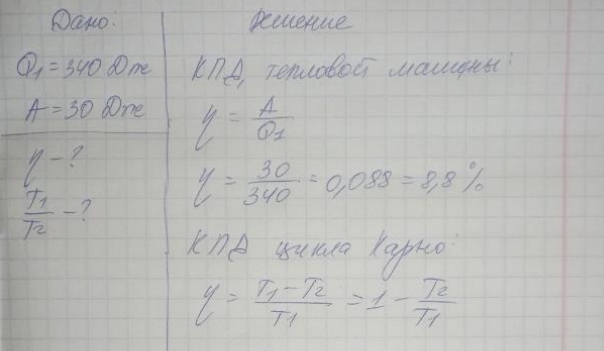 Дано:
Q₁ = 340 Дж
A = 30 Дж
η - ?
T₁/T₂ - ?
Решение
КПД тепловой машины:
η = A/Q₁
η = 30/340 = 0,088 = 8,8 %
КПД цикла Карно:
η = (T₁ - T₂)/T₁ = 1 - T₂/T₁